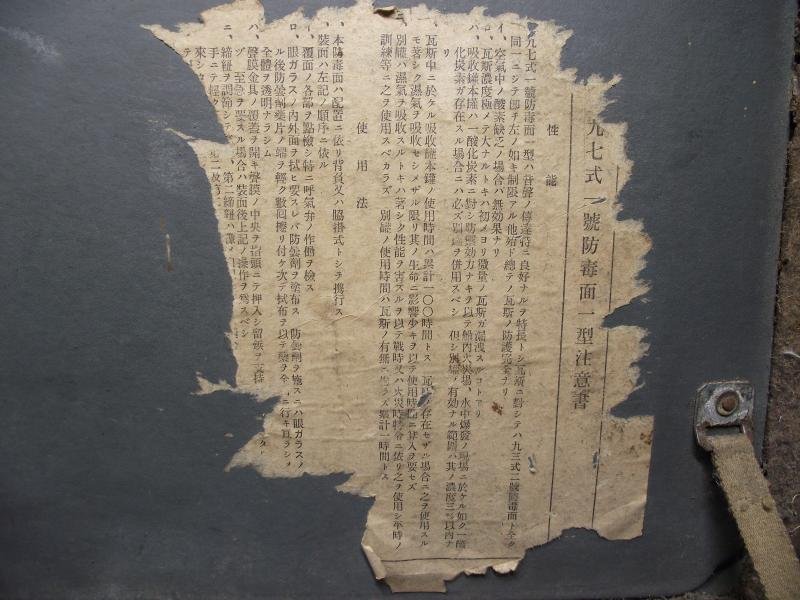 九七式一號防毒面一型注意書
性能
九七式一號防毒面一型ハ音聲ノ傳達特ニ良好ナルヲ特長トシ瓦斯ニ對シテハ九三式二號防毒面ト全ク
同一ニシテ即チ左ノ如キ制限アル他殆ド總テノ瓦斯ノ防護完全ナリ
イ、空氣中ノ酸素缺乏ノ場合ハ無効果ナリ
ロ、瓦斯濃度極メテ大ナルトキハ初メヨリ微量ノ瓦斯ガ漏洩スルコトアリ
ハ、吸收罐本罐ハ一酸化炭素ニ對シ防禦効力ナキヲ以テ艦內火災場、水中爆發ノ現場ニ於ケル如ク一酸
化炭素ガ存在スル場合ニハ必ズ別罐ヲ併用スベシ 但シ別罐ノ有効ナル範圍ハ其ノ濃度三%以內ナ
リ
瓦斯中ニ於ケル吸收罐本罐ノ使用時間ハ累計一〇〇時間トス 瓦斯ノ存在セザル場合ニ之ヲ使用スル
モ著シク濕氣ヲ吸收セシメザル限リ其ノ生命ニ影響少キヲ以テ使用時間ニ算入ヲ要セズ
別罐ハ濕氣ヲ吸收スルトキハ著シク性能ヲ害スルヲ以テ戰時又ハ火災時特令ニ依リ之ヲ使用シ平時ノ
訓練等ニ之ヲ使用スベカラズ 別罐ノ使用時間ハ瓦斯ノ有無ニ拘ラズ累計一時間トス
使用法
、本防毒面ハ配置ニ依リ背負又ハ脇掛式トシテ携行ス
、裝面ハ左記ノ順序ニ依ル
イ、覆面ノ各部ヲ點檢シ特ニ呼氣弁ノ作働ヲ檢ス
ロ、眼ガラスノ內外面ヲ拭ヒ要スレバ防曇劑ヲ塗布ス 防曇劑ヲ施スニハ眼ガラスノ
ル後防曇劑藥片ノ端ヲ輕ク數回擦リ付ケ次デ拭布ヲ以テ藥ヲ全 ニ行キ亘ラシメ
全體ヲ透明ナラシム
ハ、聲膜金具ノ覆蓋ヲ開キ聲膜ノ中央ヲ指頭ニテ押入シ留 ヲ支持
ヅ 至急ヲ要スル場合ハ裝面後上記ノ操作ヲ爲スベシ
ニ、締紐ヲ調節シテ 、第二締紐ハ
手ニテ輕ク
來シタ
テ